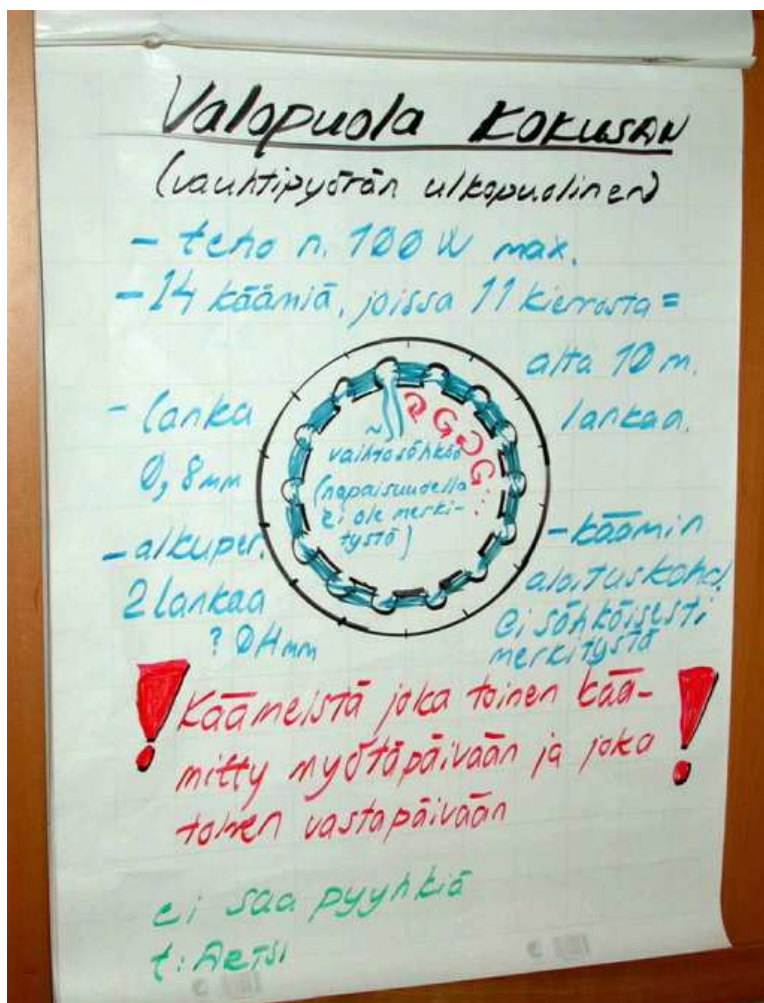 Valopuola KOKUSAN
(vauhtipyörän ulkopuolinen)
- teho n. 100 W max.
- 14 käämiä, joissa 11 kierrosta =
alta 10 m.
lankaa.
- lanka
0,8 mm
- alkuper.
2 lankaa
? 0H mm
~
vaihtosähkö
(napaisuudella
ei ole merki-
tystä)
- käämin
aloituskohd.
ei sähköisesti
merkitystä
! Käämeistä joka toinen kää- !
mitty myötäpäivään ja joka
toinen vastapäivään
ei saa pyyhkiä
t: Artsi